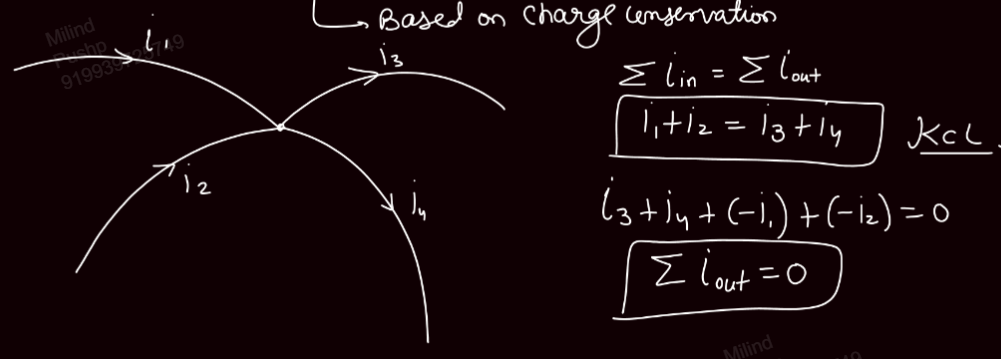 Based on charge conservation
Milind
Pushp
i₁
i₃
i₂
i₄
Σ i_in = Σ i_out
i₁ + i₂ = i₃ + i₄
KCL.
i₃ + i₄ + (-i₁) + (-i₂) = 0
Σ i_out = 0
Milind